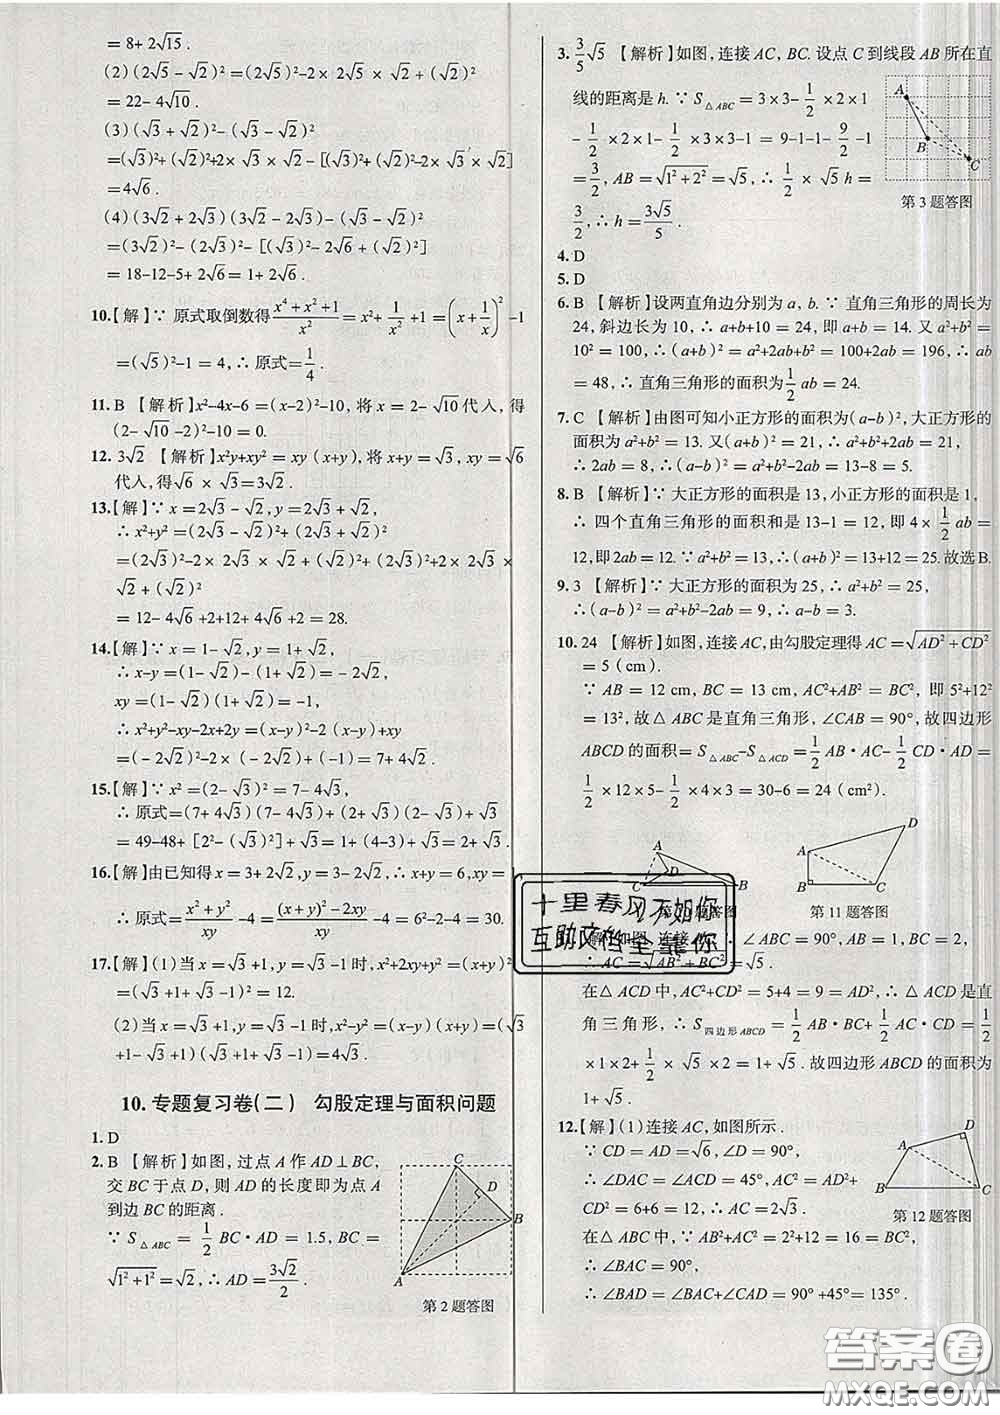 = 8+ 2√15 .
(2) (2√5 − √2)² =(2√5)²−2× 2√5 × √2 +(√2)²
= 22− 4√10 .
(3) (√3 + √2)² − (√3 − √2)²
=(√3)²+ (√2)²+2× √3 × √2 − [(√3)²+ (√2)²−2× √3 × √2]
= 4√6 .
(4) (3√2 + 2√3) (3√2 − 2√3) − (√3 − √2)²
= (3√2)² − (2√3)² − [(√3)² − 2√6 + (√2)²]
= 18−12−5+ 2√6 = 1+ 2√6 .
10.【解】∵ 原式取倒数得(x⁴ + x² +1)/x² = x²+ 1/x² +1 =(x + 1/x)² −1
=(√5)²−1 = 4, ∴ 原式=1/4 .
11. B 【解析】x²−4x−6 =(x−2)²−10, 将 x = 2− √10 代入, 得
(2− √10 −2)²−10 = 0.
12. 3√2 【解析】x²y+xy² = xy (x+y), 将 x+y = √3, xy = √6
代入, 得√6 × √3 =3√2 .
13.【解】∵ x = 2√3 − √2, y = 2√3 + √2,
∴ x²+y² = (2√3 − √2)²+ (2√3 + √2)²
= (2√3)²−2× 2√3 × √2 + (√2)²+ (2√3)²+2× 2√3 ×
√2 + (√2)²
= 12− 4√6 +2+12+ 4√6 +2 = 28.
14.【解】∵ x = 1− √2, y = 1+ √2,
∴ x−y = (1− √2) − (1+ √2) = − 2√2,
xy = (1− √2) (1+ √2) = −1,
∴ x²+y²−xy−2x+2y = (x−y)²−2 (x−y)+xy
= (− 2√2)²−2× (− 2√2)+(−1)= 7+ 4√2 .
15.【解】∵ x² =(2− √3)² = 7− 4√3,
∴ 原式= (7+ 4√3) (7− 4√3) + (2+ √3) (2− √3) + √3
= 49−48+ [2² −(√3)²] + √3 = 1+ (4−3) + √3 = 2+ √3 .
16.【解】由已知得 x = 3+ 2√2, y = 3− 2√2, ∴ x+y = 6, xy = 1
∴ 原式= (x² + y²)/xy −4 = ((x+y)² −2xy)/xy −4 = 6²−2−4 = 30.
17.【解】(1)当 x = √3 +1, y = √3 −1 时, x²+2xy+y² = (x+y)²
= (√3 +1+ √3 −1)² = 12.
(2)当 x = √3 +1, y = √3 −1 时, x²−y² = (x−y) (x+y) = (√3
+1− √3 +1) (√3 +1+ √3 −1)= 4√3 .
10. 专题复习卷(二) 勾股定理与面积问题
1. D
2. B 【解析】如图, 过点 A 作 AD ⊥ BC,
交 BC 于点 D, 则 AD 的长度即为点 A
到边 BC 的距离 .
∵ S△ABC = 1/2 BC · AD = 1.5, BC =
√(1² +1²) = √2, ∴ AD = 3√2/2 .
C
D
B
A
第 2 题答图
3. 3/5 √5 【解析】如图, 连接 AC, BC. 设点 C 到线段 AB 所在直
线的距离是 h. ∵ S△ABC = 3×3− 1/2 ×2×1
− 1/2 ×2×1− 1/2 ×3×3−1 = 9−1−1− 9/2 −1
= 3/2, AB = √(1² +2²) = √5, ∴ 1/2 × √5 h =
3/2, ∴ h = 3√5/5 .
A
B
C
第 3 题答图
4. D
5. D
6. B 【解析】设两直角边分别为 a, b. ∵ 直角三角形的周长为
24, 斜边长为 10, ∴ a+b+10 = 24, 即 a+b = 14. 又 a²+b² =
10² = 100, ∴ (a+b)² = a²+2ab+b² = 100+2ab = 196, ∴ ab
= 48, ∴ 直角三角形的面积为1/2 ab = 24.
7. C 【解析】由图可知小正方形的面积为(a−b)², 大正方形的
面积为 a²+b² = 13. 又(a+b)² = 21, ∴ a²+b²+2ab = 21,
∴ 2ab = 8, ∴ (a−b)² = a²+b²−2ab = 13−8 = 5.
8. B 【解析】∵ 大正方形的面积是 13, 小正方形的面积是 1,
∴ 四个直角三角形的面积和是 13−1 = 12, 即 4× 1/2 ab =
12, 即 2ab = 12. ∵ a²+b² = 13, ∴ (a+b)² = 13+12 = 25. 故选 B.
9. 3 【解析】∵ 大正方形的面积为 25, ∴ a²+b² = 25,
∴ (a−b)² = a²+b²−2ab = 9, ∴ a−b = 3.
10. 24 【解析】如图, 连接 AC, 由勾股定理得 AC =√(AD² + CD²)
= 5 (cm).
∵ AB = 12 cm, BC = 13 cm, AC²+AB² = BC², 即 5²+12²
= 13², 故△ ABC 是直角三角形, ∠CAB = 90°, 故四边形
ABCD 的面积= S△ABC−S△ACD = 1/2 AB · AC− 1/2 CD · AD =
1/2 ×12×5− 1/2 ×4×3 = 30−6 = 24 (cm²).
A
D
C
B
题答图
D
A
B
C
第 11 题答图
【解】如图, 连接 AC. ∵ ∠ ABC = 90°, AB = 1, BC = 2,
∴ AC =√(AB² + BC²) = √5 .
在△ ACD 中, AC²+CD² = 5+4 = 9 = AD², ∴ △ ACD 是直
角三角形, ∴ S四边形ABCD = 1/2 AB · BC+ 1/2 AC · CD = 1/2
×1×2+ 1/2 × √5 ×2 = 1+ √5 . 故四边形 ABCD 的面积为
1+ √5 .
12.【解】(1)连接 AC, 如图所示 .
∵ CD = AD = √6, ∠D = 90°,
∴ ∠DAC = ∠ACD = 45°, AC² = AD²+
CD² = 6+6 = 12, ∴ AC = 2√3 .
在△ ABC 中, ∵ AB²+AC² = 2²+12 = 16 = BC²,
∴ ∠BAC = 90°,
∴ ∠BAD = ∠BAC+∠CAD = 90° +45°= 135° .
D
A
B
C
第 12 题答图
十里春风不如你
互助文档全靠你
答案圈
MXQE.COM